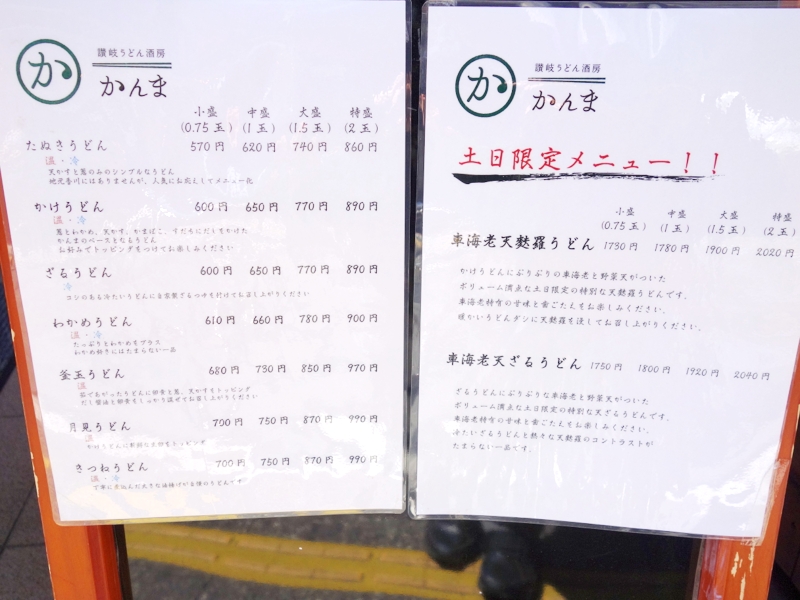 か
讃岐うどん酒房
かんま
小盛 中盛 大盛 特盛
(0.75 玉) (1 玉) (1.5 玉) (2 玉)
たぬきうどん 570 円 620 円 740 円 860 円
温・冷
天かすと葱のみのシンプルなうどん
地元香川にはありませんが、人気にお応えしてメニュー化
かけうどん 600 円 650 円 770 円 890 円
温・冷
葱とわかめ、天かす、かまぼこ、すだちにだしをかけた
かんまのベースとなるうどん
お好みでトッピングをつけてお楽しみください
ざるうどん 600 円 650 円 770 円 890 円
冷
コシのある冷たいうどんに自家製ざるつゆを付けてお召し上がりください
わかめうどん 610 円 660 円 780 円 900 円
温・冷
たっぷりとわかめをプラス
わかめ好きにはたまらない一品
釜玉うどん 680 円 730 円 850 円 970 円
温
茹であがったうどんに卵黄と葱、天かすをトッピング
だし醤油と卵黄をしっかり混ぜてお召し上がりください
月見うどん 700 円 750 円 870 円 990 円
温
かけうどんに新鮮な玉卵をトッピング
きつねうどん 700 円 750 円 870 円 990 円
温・冷
丁寧に煮込んだ大きな油揚げが自慢のうどんです
か
讃岐うどん酒房
かんま
土日限定メニュー！！
小盛 中盛 大盛 特盛
(0.75 玉) (1 玉) (1.5 玉) (2 玉)
車海老天麩羅うどん 1730 円 1780 円 1900 円 2020 円
かけうどんにぷりぷりの車海老と野菜天がついた
ボリューム満点な土日限定の特別な天麩羅うどんです。
車海老特有の甘味と歯ごたえをお楽しみください。
暖かいうどんダシに天麩羅を浸してお召し上がりください。
車海老天ざるうどん 1750 円 1800 円 1920 円 2040 円
ざるうどんにぷりぷりな車海老と野菜天がついた
ボリューム満点な土日限定の特別な天ざるうどんです。
車海老特有の甘味と歯ごたえをお楽しみください。
冷たいざるうどんと熱々な天麩羅のコントラストが
たまらない一品です。